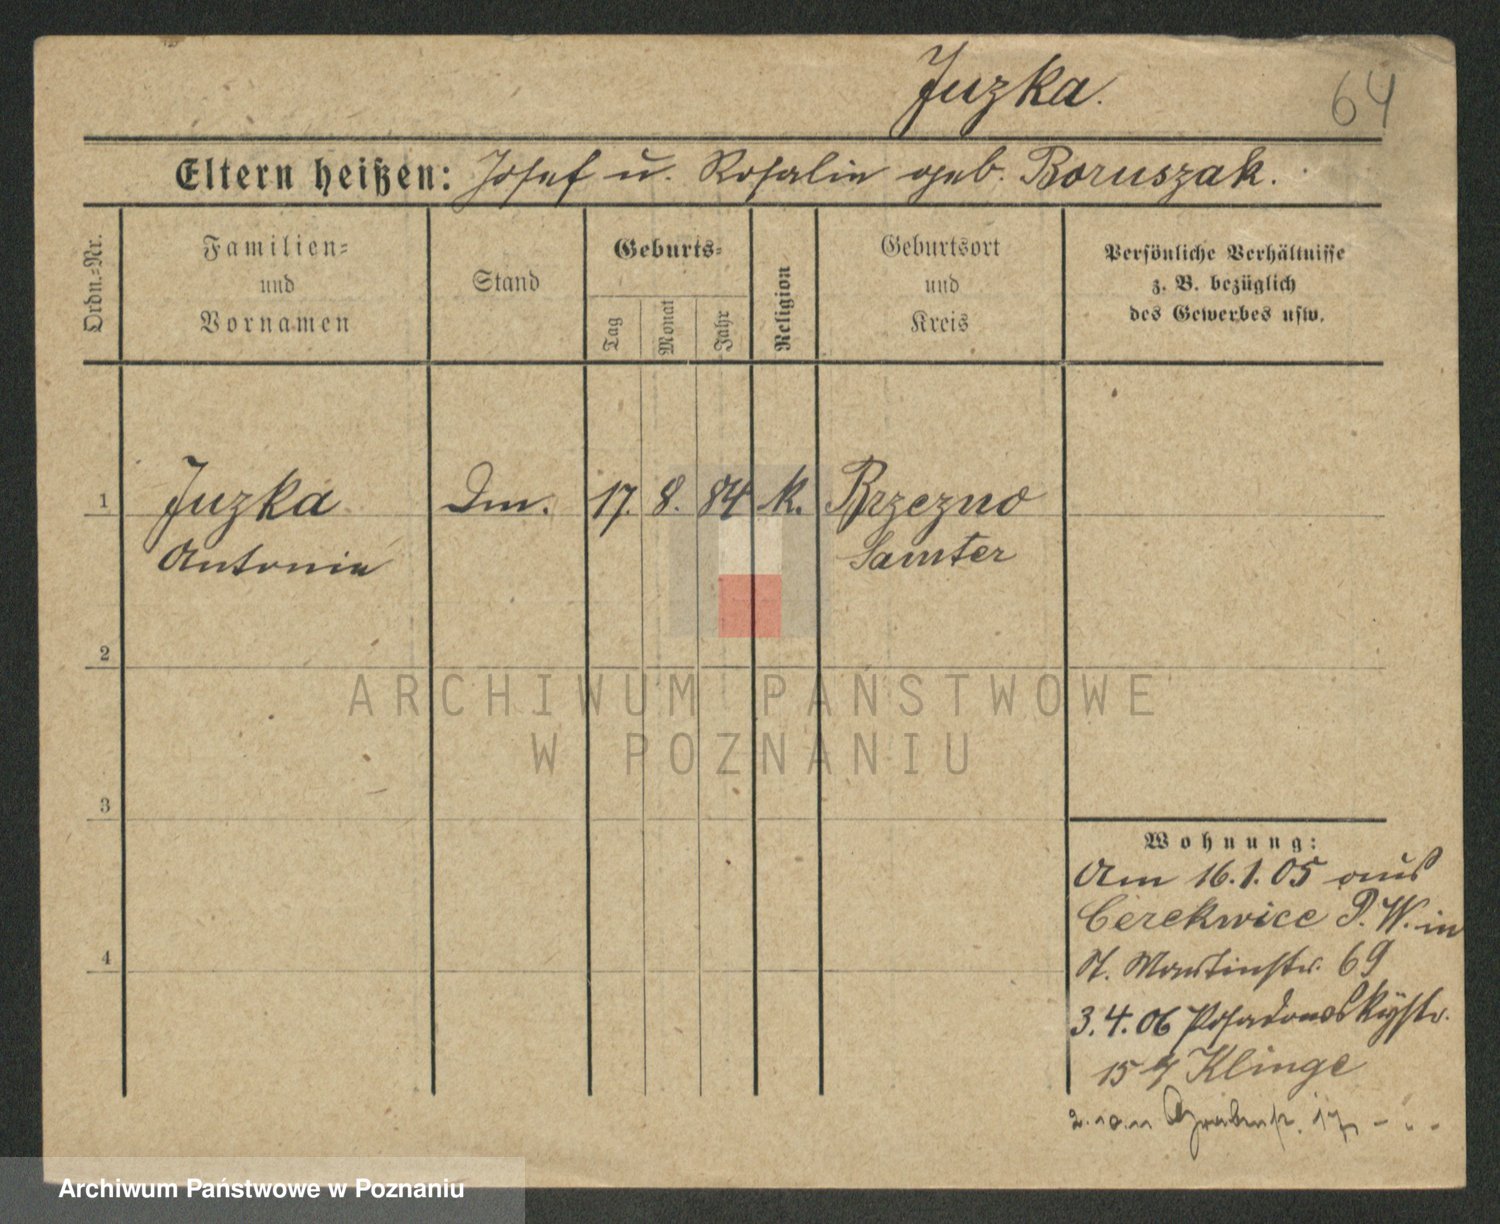 Juzka.
64
Eltern heißen: Josef u. Rosalie geb. Boruszak.
Ordn.-Nr.
Familien-
und
Vornamen
Stand
Geburts-
Tag
Monat
Jahr
Religion
Geburtsort
und
Kreis
Persönliche Verhältnisse
z. B. bezüglich
des Gewerbes usw.
1 Juzka 17. 8. 84 k. Brzezno
Antonie Samter
2
3
4
Wohnung:
Am 16.1.05 aus
Cerekwice P. W. in
St. Martinstr. 69
3.4.06 Posadowskystr.
15 Klinge
Grabenstr.
ARCHIWUM PAŃSTWOWE
W POZNANIU
Archiwum Państwowe w Poznaniu